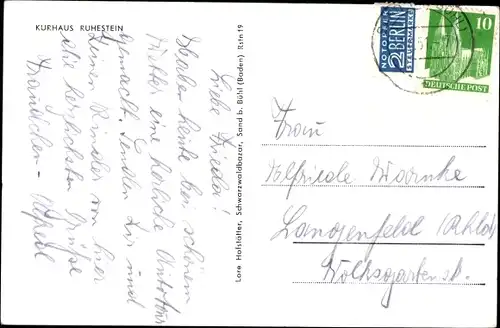 KURHAUS RUHESTEIN
Liebe Frieda!
Haben heute bei schönem
Wetter eine herrliche Autotour
gemacht. Senden Dir und
Deinen Kinder von hier
die herzlichsten Grüße
Fränzchen - Alfred
Lore Hofstätter, Schwarzwaldbazar, Sand b. Bühl (Baden) Rstn 19
NOTOPFER
2 BERLIN
STEUERMARKE
10
DEUTSCHE POST
Frau
Elfriede Warnke
Langenfeld (Rhld)
Volksgartenstr.